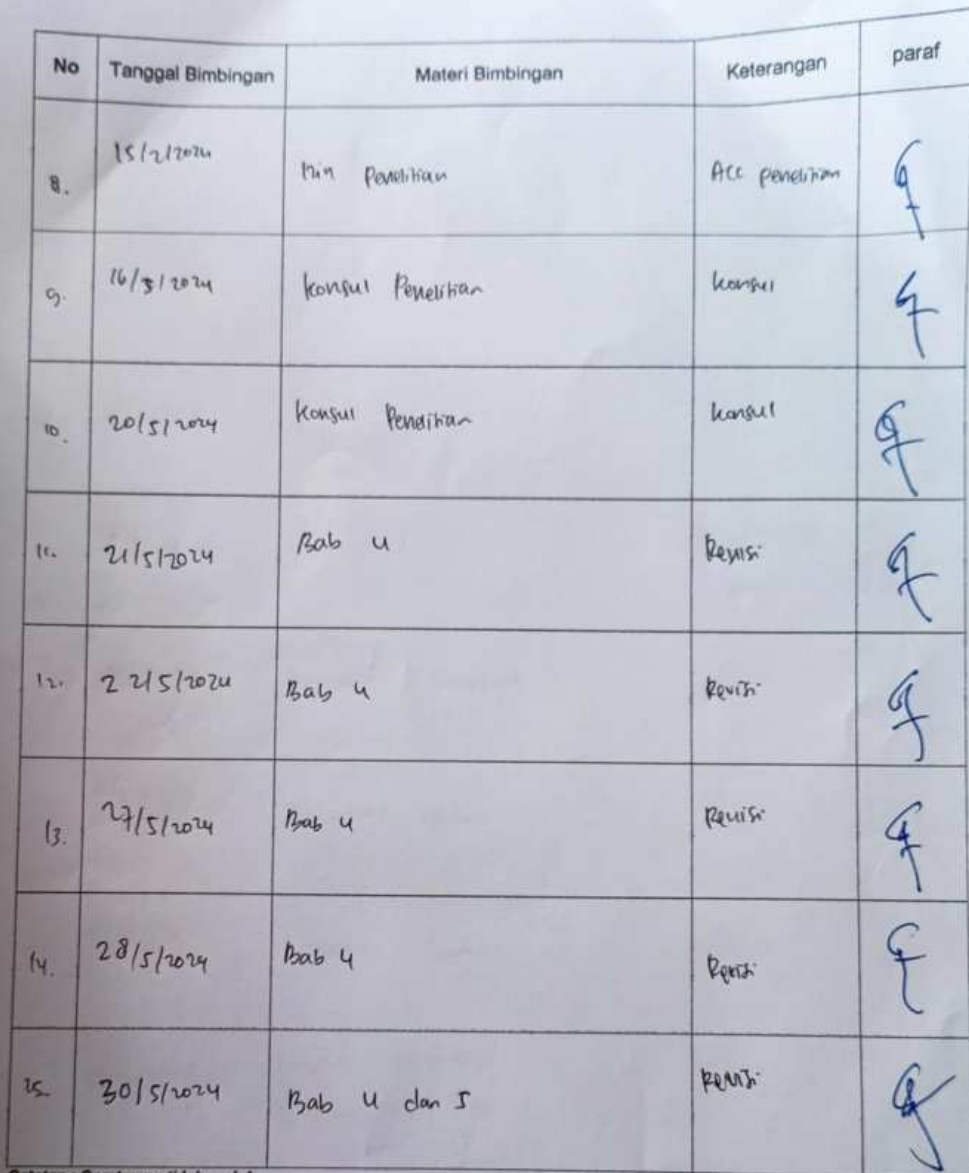 No Tanggal Bimbingan Materi Bimbingan Keterangan paraf
8. 15/2/2024 Izin Penelitian Acc penelitian
9. 16/3/2024 Konsul Penelitian konsul
10. 20/5/2024 Konsul Penelitian konsul
11. 21/5/2024 Bab 4 Revisi
12. 22/5/2024 Bab 4 Revisi
13. 27/5/2024 Bab 4 Revisi
14. 28/5/2024 Bab 4 Revisi
15. 30/5/2024 Bab 4 dan 5 Revisi